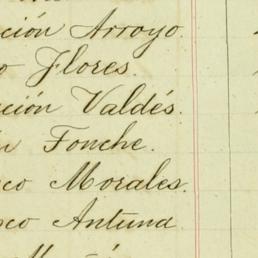 ción Arroyo
o Flores.
ción Valdés.
n Fonche.
co Morales.
co Antuna